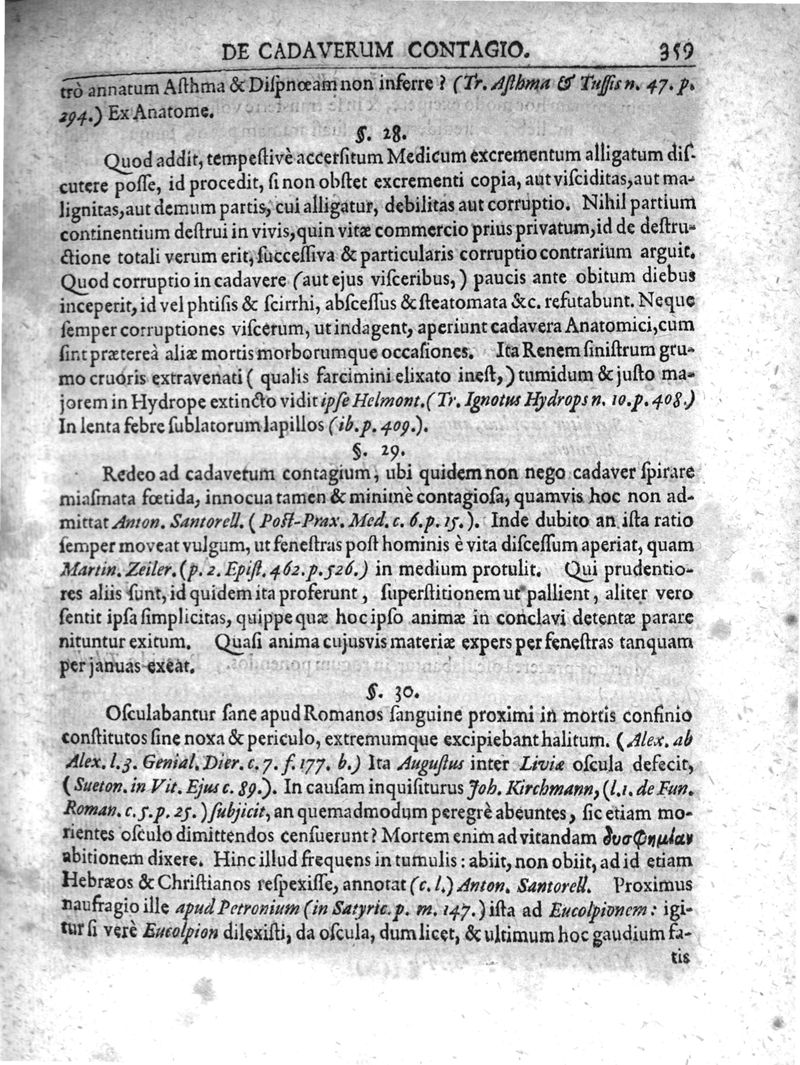 DE CADAVERUM CONTAGIO. 359
trò annatum Aſthma & Diſpnœam non inferre? (Tr. Aſthma & Tuſſis n. 47. p.
294.) Ex Anatome.
§. 28.
Quod addit, tempeſtivè accerſitum Medicum excrementum alligatum diſ-
cutere poſſe, id procedit, ſi non obſtet excrementi copia, aut viſciditas, aut ma-
lignitas, aut demum partis, cui alligatur, debilitas aut corruptio. Nihil partium
continentium deſtrui in vivis, quin vitæ commercio prius privatum, id de deſtru-
ctione totali verum erit, ſucceſſiva & particularis corruptio contrarium arguit.
Quod corruptio in cadavere (aut ejus viſceribus,) paucis ante obitum diebus
inceperit, id vel phtiſis & ſcirrhi, abſceſſus & ſteatomata &c. refutabunt. Neque
ſemper corruptiones viſcerum, ut indagent, aperiunt cadavera Anatomici, cum
ſint prætereà aliæ mortis morborumque occaſiones. Ita Renem ſiniſtrum gru-
mo cruoris extravenati (qualis farcimini elixato ineſt,) tumidum & juſto ma-
jorem in Hydrope extincto vidit ipſe Helmont. (Tr. Ignotus Hydrops n. 10. p. 408.)
In lenta febre ſublatorum lapillos (ib. p. 409.).
§. 29.
Redeo ad cadaverum contagium, ubi quidem non nego cadaver ſpirare
miaſmata fœtida, innocua tamen & minimè contagioſa, quamvis hoc non ad-
mittat Anton. Santorell. (Poſt-Prax. Med. c. 6. p. 15.). Inde dubito an iſta ratio
ſemper moveat vulgum, ut feneſtras poſt hominis è vita diſceſſum aperiat, quam
Martin. Zeiler. (p. 2. Epiſt. 462. p. 526.) in medium protulit. Qui prudentio-
res aliis ſunt, id quidem ita proferunt, ſuperſtitionem ut pallient, aliter vero
ſentit ipſa ſimplicitas, quippe quæ hoc ipſo animæ in conclavi detentæ parare
nituntur exitum. Quaſi anima cujusvis materiæ expers per feneſtras tanquam
per januas exeat.
§. 30.
Oſculabantur ſane apud Romanos ſanguine proximi in mortis confinio
conſtitutos ſine noxa & periculo, extremumque excipiebant halitum. (Alex. ab
Alex. l. 3. Genial. Dier. c. 7. f. 177. b.) Ita Auguſtus inter Liviæ oſcula defecit,
(Sueton. in Vit. Ejus c. 89.). In cauſam inquiſiturus Joh. Kirchmann, (l. 1. de Fun.
Roman. c. 5. p. 25.) ſubjicit, an quemadmodum peregrè abeuntes, ſic etiam mo-
rientes oſculo dimittendos cenſuerunt? Mortem enim ad vitandam δυσφημίαν
abitionem dixere. Hinc illud frequens in tumulis: abiit, non obiit, ad id etiam
Hebræos & Chriſtianos reſpexiſſe, annotat (c. l.) Anton. Santorell. Proximus
naufragio ille apud Petronium (in Satyric. p. m. 147.) iſta ad Eucolpionem: igi-
tur ſi verè Eucolpion dilexiſti, da oſcula, dum licet, & ultimum hoc gaudium fa-
tis